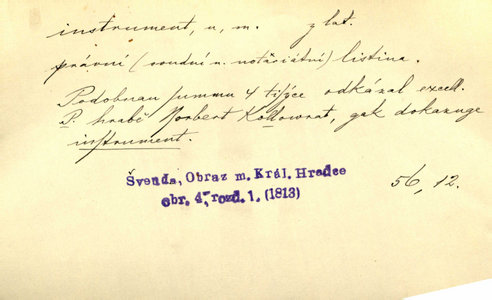 instrument, u, m. z lat.
právní (soudní n. notářiátní) listina.
Podobnau summu 4 tisýce odkázal excell.
P. hrabě Norbert Kollowrat, gak dokazuge
instrument.
Švenda, Obraz m. Král. Hradce
obr. 4, rozd. 1. (1813)
56, 12.